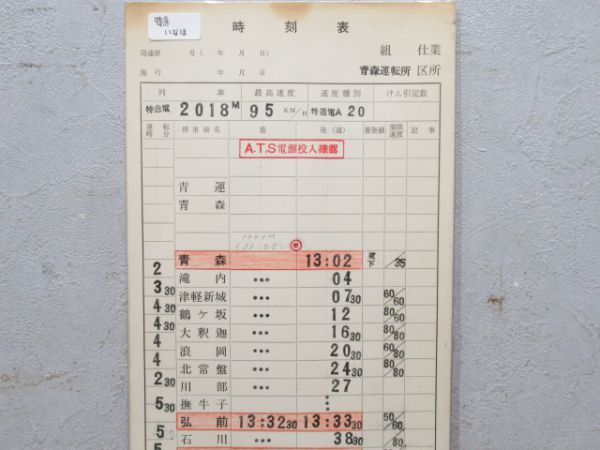 特急
いなほ
時刻表
局達第 号( 年 月 日) 組 仕業
施行 年 月 日 青森運転所 区所
列 車 最高速度 速度種別 けん引定数
特急電 2018M 95 KM/H 特通電A 20
運転時分 停車場名 着 発(通) 着発線 制限速度 記事
A.T.S電源投入確認
青運
青森
1001M
(11:05)
青森 13:02 35
2 滝内 ••• 04
3 30 津軽新城 ••• 07 30 60/60
4 30 鶴ケ坂 ••• 12 80/80
4 30 大釈迦 ••• 16 30 80/60
4 浪岡 ••• 20 30 60/80
4 北常盤 ••• 24 30 80/80
2 30 川部 ••• 27
撫牛子
5 30 弘前 13:32 30 13:33 30 50/60
5 石川 ••• 38 30